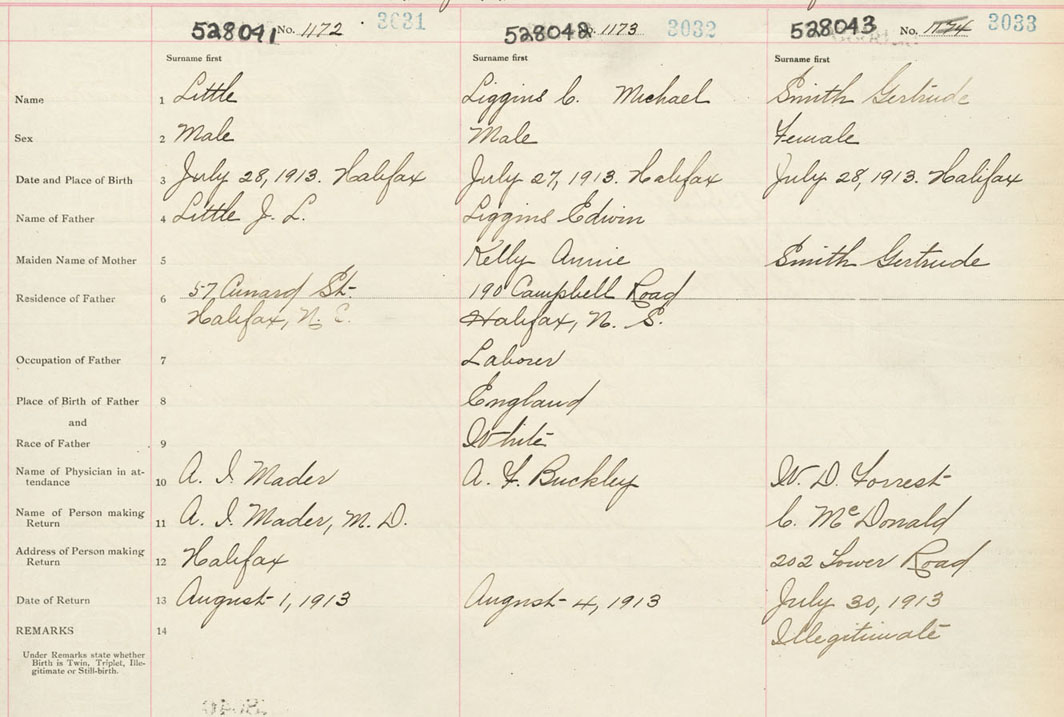 528041 No. 1172 3031 528042 1173 3032 528043 No. 1174 3033
Surname first Surname first Surname first
Name 1 Little Liggins C. Michael Smith Gertrude
Sex 2 Male Male Female
Date and Place of Birth 3 July 28, 1913. Halifax July 27, 1913. Halifax July 28, 1913. Halifax
Name of Father 4 Little J. L. Liggins Edwin
Maiden Name of Mother 5 Kelly Annie Smith Gertrude
Residence of Father 6 57 Cunard St. 190 Campbell Road
Halifax, N. S. Halifax, N. S.
Occupation of Father 7 Laborer
Place of Birth of Father 8 England
and
Race of Father 9 White
Name of Physician in at-
tendance 10 A. I. Mader A. F. Buckley W. D. Forrest
Name of Person making
Return 11 A. I. Mader, M. D. C. McDonald
Address of Person making
Return 12 Halifax 202 Tower Road
Date of Return 13 August 1, 1913 August 4, 1913 July 30, 1913
REMARKS 14 Illegitimate
Under Remarks state whether
Birth is Twin, Triplet, Ille-
gitimate or Still-birth.